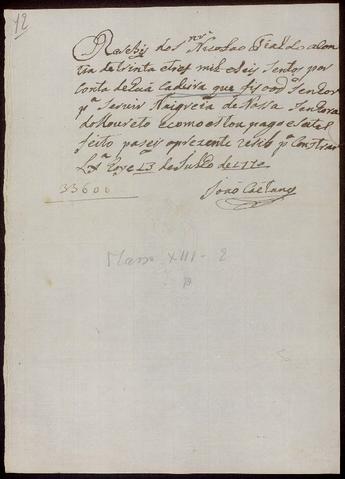 12
Resebij do Snr Nicolao Fialdo a con
tia de trinta e tres mil e seis sentos por
conta de hua Cadeira que fis ao dº Senhor
pª Servir Na igreia de Nossa Senhora
do Loureto e como estou pago e satis
feito pasei aprezente resibo pª Constar
Lxª Oye 13 de Julho de 1770
33600
João Caetano
Masso XIII - 2